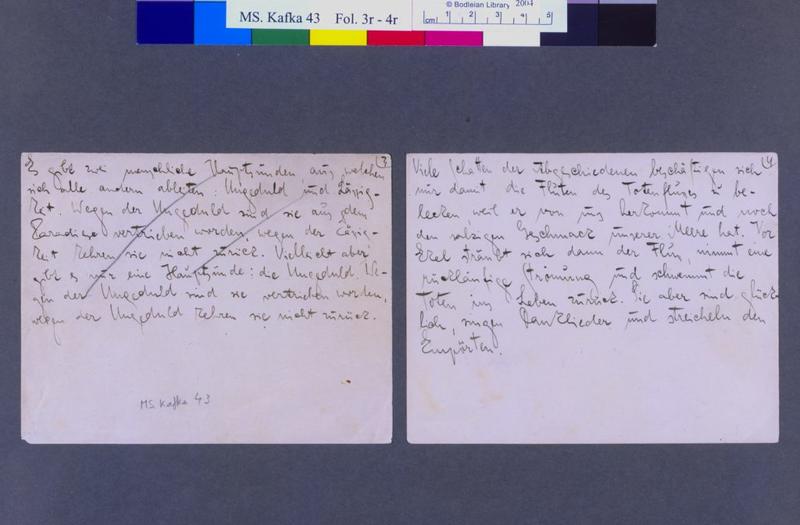 MS. Kafka 43 Fol. 3r - 4r
© Bodleian Library 2004
cm 1 2 3 4 5
3
Es gibt zwei menschliche Hauptsünden, aus welchen
sich alle andern ableiten: Ungeduld und Lässig-
keit. Wegen der Ungeduld sind sie aus dem
Paradiese vertrieben worden, wegen der Lässig-
keit kehren sie nicht zurück. Vielleicht aber
gibt es nur eine Hauptsünde: die Ungeduld. We-
gen der Ungeduld sind sie vertrieben worden,
wegen der Ungeduld kehren sie nicht zurück.
MS. Kafka 43
4
Viele Schatten der Abgeschiedenen beschäftigen sich
nur damit die Fluten des Totenflusses zu be-
lecken weil er von uns herkommt und noch
den salzigen Geschmack unserer Meere hat. Vor
Ekel sträubt sich dann der Fluss, nimmt eine
rückläufige Strömung und schwemmt die
Toten ins Leben zurück. Sie aber sind glück-
lich, singen Danklieder und streicheln den
Empörten.